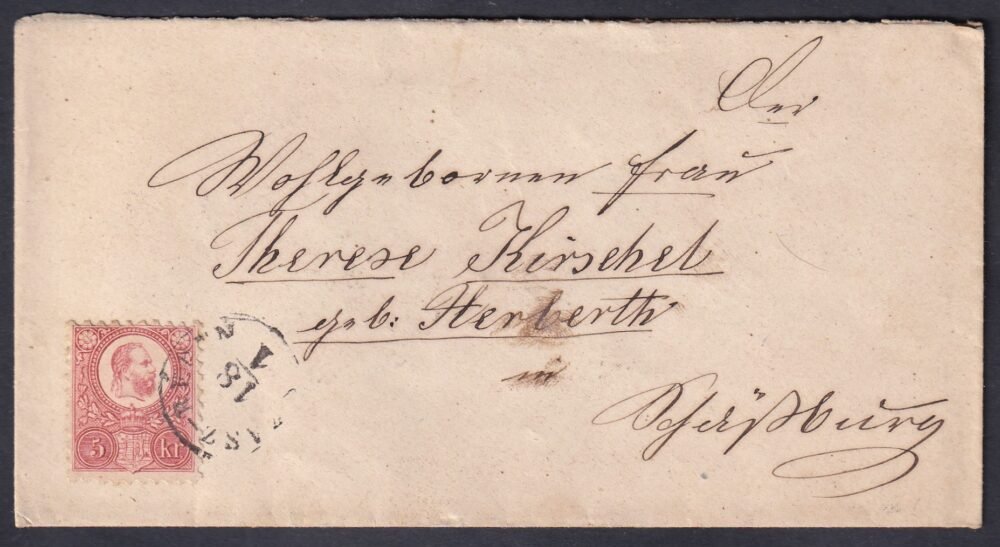 Der
Wohlgebornen Frau
Therese Kirschel
geb: Herberth
in
Schäßburg
5 kr